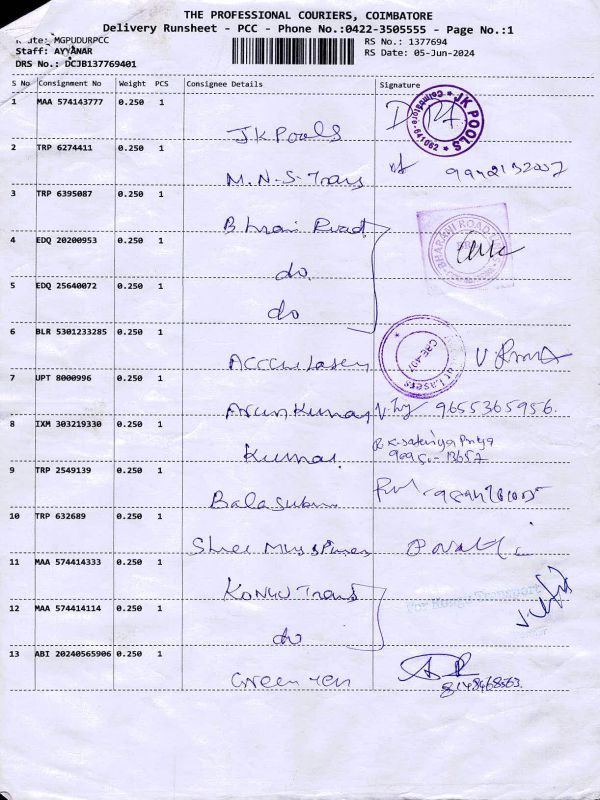 THE PROFESSIONAL COURIERS, COIMBATORE
Delivery Runsheet - PCC - Phone No.:0422-3505555 - Page No.:1
Route: MGPUDURPCC
RS No.: 1377694
Staff: AYYANAR
RS Date: 05-Jun-2024
DRS No.: DCJB137769401
S No Consignment No Weight PCS Consignee Details Signature
1 MAA 574143777 0.250 1 JK Pools
JK POOLS * Coimbatore-641062 *
2 TRP 6274411 0.250 1 M.N.S. Trans
3 TRP 6395087 0.250 1
4 EDQ 20200953 0.250 1 do
BHARANI ROAD
5 EDQ 25640072 0.250 1 do
6 BLR 5301233285 0.250 1
CBE-407
7 UPT 8000996 0.250 1 Arun Kumar 9655365956.
8 IXM 303219330 0.250 1 Kumar
9 TRP 2549139 0.250 1
10 TRP 632689 0.250 1
11 MAA 574414333 0.250 1 Kongu Trans
For Kongu Transport
12 MAA 574414114 0.250 1 do
13 ABI 20240565906 0.250 1 Green
8148468563.